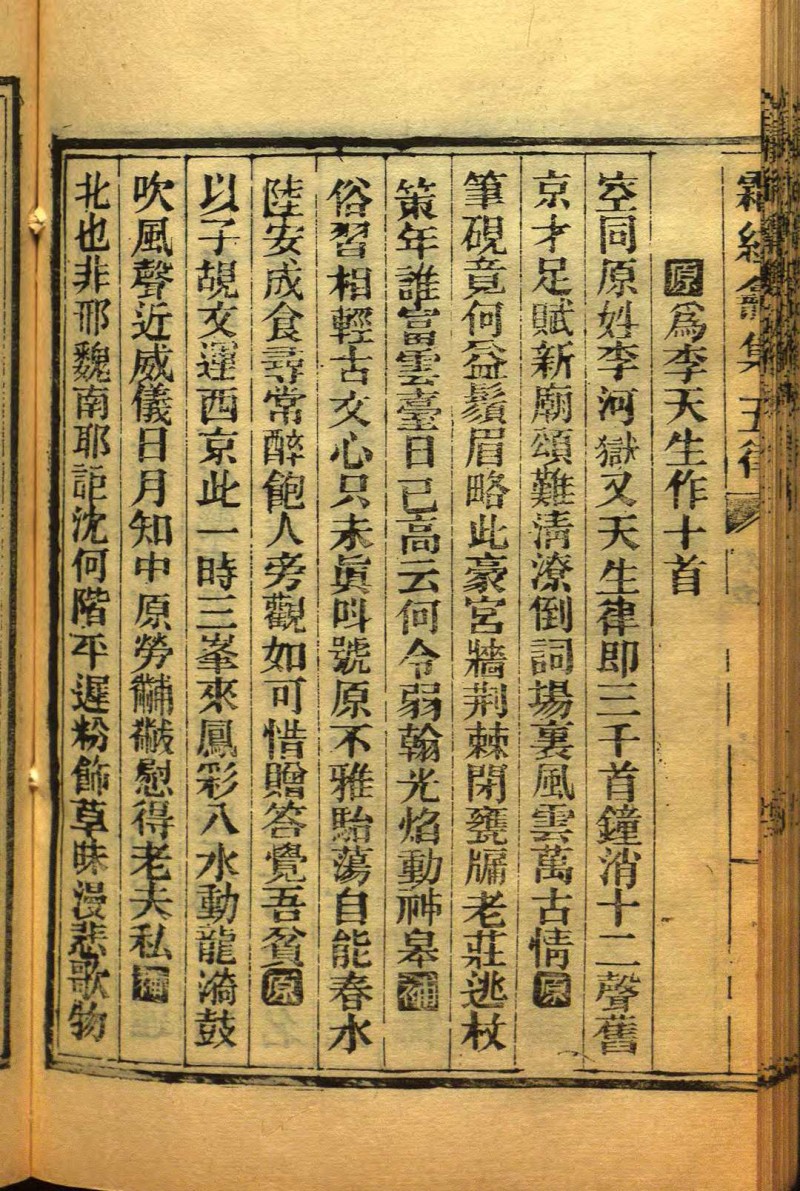 霜紅龕集 五律
原爲李天生作十首
空同原姓李河獄又天生律即三千首鐘消十二聲舊
京才足賦新廟頌難淸潦倒詞場裏風雲萬古情原
筆硯竟何益鬚眉略此豪宮牆荆棘閉甕牖老莊逃杖
策年誰富雲臺日已高云何令弱翰光焰動神皋補
俗習相輕古文心只未眞呌號原不雅駘蕩自能春水
陸安成食尋常醉飽人旁觀如可惜贈答覺吾貧原
以子覘文運西京此一時三峯來鳳彩八水動龍漪鼓
吹風聲近威儀日月知中原勞黼黻慰得老夫私補
北也非邢魏南耶詎沈何階平遲粉飾草昧漫悲歌物